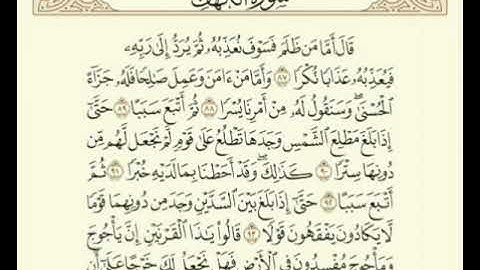 سورة الكهف
قَالَ أَمَّا مَن ظَلَمَ فَسَوْفَ نُعَذِّبُهُۥ ثُمَّ يُرَدُّ إِلَىٰ رَبِّهِۦ
فَيُعَذِّبُهُۥ عَذَابًا نُّكْرًا ٨٧ وَأَمَّا مَنْ ءَامَنَ وَعَمِلَ صَٰلِحًا فَلَهُۥ جَزَآءً
ٱلْحُسْنَىٰ ۖ وَسَنَقُولُ لَهُۥ مِنْ أَمْرِنَا يُسْرًا ٨٨ ثُمَّ أَتْبَعَ سَبَبًا ٨٩ حَتَّىٰٓ
إِذَا بَلَغَ مَطْلِعَ ٱلشَّمْسِ وَجَدَهَا تَطْلُعُ عَلَىٰ قَوْمٍ لَّمْ نَجْعَل لَّهُم مِّن
دُونِهَا سِتْرًا ٩٠ كَذَٰلِكَ ۖ وَقَدْ أَحَطْنَا بِمَا لَدَيْهِ خُبْرًا ٩١ ثُمَّ
أَتْبَعَ سَبَبًا ٩٢ حَتَّىٰٓ إِذَا بَلَغَ بَيْنَ ٱلسَّدَّيْنِ وَجَدَ مِن دُونِهِمَا قَوْمًا
لَّا يَكَادُونَ يَفْقَهُونَ قَوْلًا ٩٣ قَالُوا۟ يَٰذَا ٱلْقَرْنَيْنِ إِنَّ يَأْجُوجَ
وَمَأْجُوجَ مُفْسِدُونَ فِى ٱلْأَرْضِ فَهَلْ نَجْعَلُ لَكَ خَرْجًا عَلَىٰٓ أَن